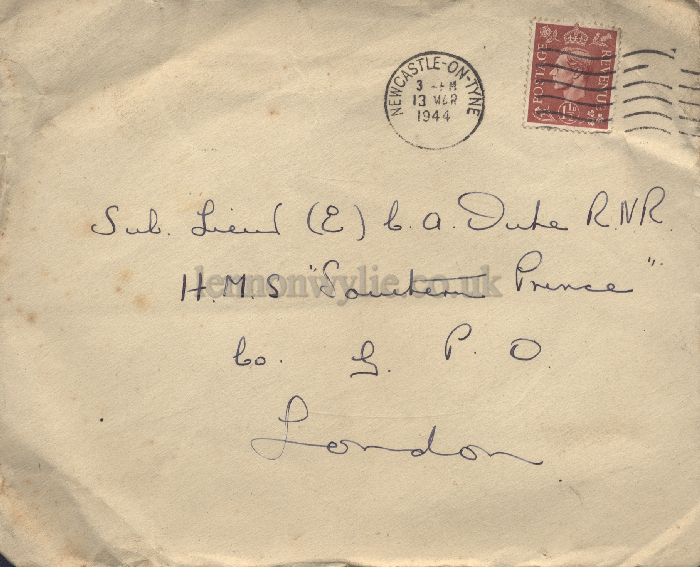 NEWCASTLE-ON-TYNE
3 PM
13 MAR
1944
POSTAGE REVENUE
1½D
Sub. Lieut (E) C. A. Duke R.N.R.
H.M.S "Southern Prince"
lennonwylie.co.uk
Co. G. P. O.
London